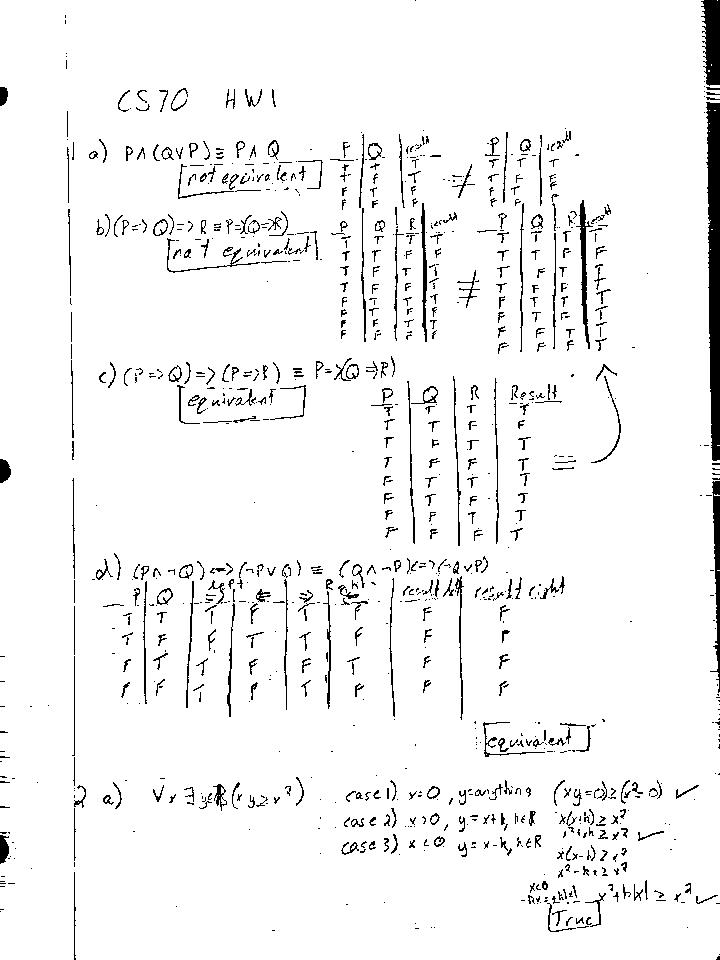 CS70 HW1
1 a) P∧(Q∨P)≡ P∧Q
not equivalent
P Q result
T T T
T F T
F T F
F F F
≢
P Q result
T T T
T F F
F T F
F F F
b) (P=>Q)=>R ≡ P=>(Q=>R)
not equivalent
P Q R result
T T T T
T T F F
T F T T
T F F T
F T T T
F T F F
F F T T
F F F F
≢
P Q R result
T T T T
T T F F
T F T T
T F F T
F T T T
F T F T
F F T T
F F F T
c) (P=>Q)=>(P=>R) ≡ P=>(Q=>R)
equivalent
P Q R Result
T T T T
T T F F
T F T T
T F F T
F T T T
F T F T
F F T T
F F F T
≡
d) (P∧¬Q)<=>(¬P∨Q) ≡ (Q∧¬P)<=>(¬Q∨P)
left Right
P Q => <= => <= result left result right
T T T F T F F F
T F F T T F F F
F T T F F T F F
F F T F T F F F
equivalent
2 a) ∀x ∃y∈R (xy≥x²)
case 1) x=0, y=anything (xy=0)≥(x²=0) ✓
case 2) x>0, y=x+k, k∈R x(x+k)≥x²
x²+xk≥x² ✓
case 3) x<0 y=x-k, k∈R x(x-k)≥x²
x²-kx≥x²
x<0
-kx=+k|x| x²+k|x| ≥ x² ✓
True